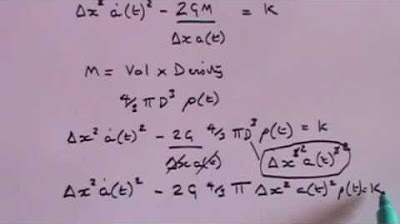 Δx² ȧ(t)² - 2GM / Δx a(t) = K
M = Vol x Density
4/3 π D³ ρ(t)
Δx² ȧ(t)² - 2G / Δx a(t) 4/3 π D³ ρ(t) = K
Δx³² a(t)³²
Δx² ȧ(t)² - 2G 4/3 π Δx² a(t)² ρ(t) = K